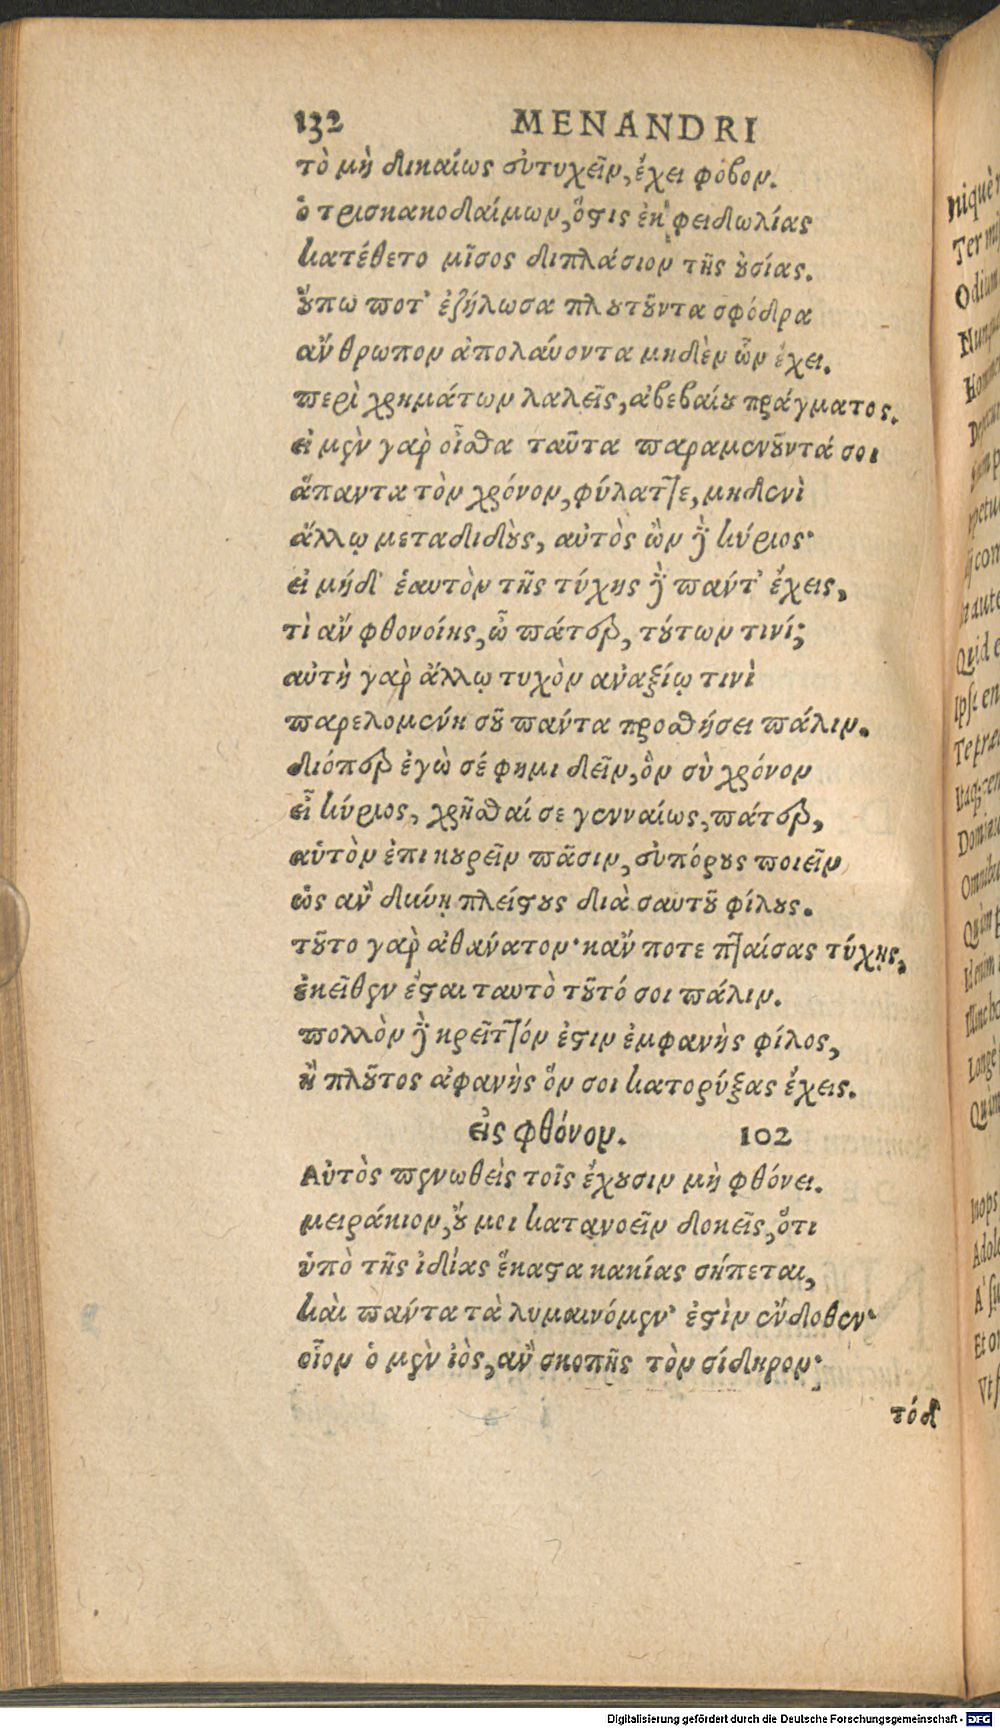 132 MENANDRI
τὸ μὴ δικαίως εὐτυχεῖν, ἔχει φόβον.
ὁ τρισκακοδαίμων, ὅστις ἐκ φειδωλίας
κατέθετο μῖσος διπλάσιον τῆς οὐσίας.
οὔπω ποτ' ἐζήλωσα πλουτοῦντα σφόδρα
ἄνθρωπον ἀπολαύοντα μηδὲν ὧν ἔχει.
περὶ χρημάτων λαλεῖς, ἀβεβαίου πράγματος.
εἰ μὲν γὰρ οἶσθα ταῦτα παραμενοῦντά σοι
ἅπαντα τὸν χρόνον, φύλαττε, μηδενὶ
ἄλλῳ μεταδιδοὺς, αὐτὸς ὢν δὲ κύριος·
εἰ μήδ' ἑαυτὸν τῆς τύχης δὲ πάντ' ἔχεις,
τὶ ἂν φθονοίης, ὦ πάτερ, τούτων τινί;
αὐτὴ γὰρ ἄλλῳ τυχὸν ἀναξίῳ τινὶ
παρελομένη σοῦ πάντα προσθήσει πάλιν.
διόπερ ἐγὼ σέ φημι δεῖν, ὃν σὺ χρόνον
εἶ κύριος, χρῆσθαί σε γενναίως, πάτερ,
αὐτὸν ἐπικουρεῖν πᾶσιν, εὐπόρους ποιεῖν
ὡς ἂν δύνῃ πλείστους διὰ σαυτοῦ φίλους.
τοῦτο γὰρ ἀθάνατον· κἄν ποτε πταίσας τύχῃς,
ἐκεῖθεν ἔσται ταυτὸ τοῦτό σοι πάλιν.
πολλὸν δὲ κρεῖττόν ἐστιν ἐμφανὴς φίλος,
ἢ πλοῦτος ἀφανὴς ὅν σοι κατορύξας ἔχεις.
εἰς φθόνον. 102
Αὐτὸς πενωθεὶς τοῖς ἔχουσιν μὴ φθόνει.
μειράκιον, οὔ μοι κατανοεῖν δοκεῖς, ὅτι
ὑπὸ τῆς ἰδίας ἕκαστα κακίας σήπεται,
καὶ πάντα τὰ λυμαινόμεν' ἐστὶν ἔνδοθεν·
οἷον ὁ μὲν ἰὸς, ἂν σκοπῆς τὸν σίδηρον·
τόδ'
Odium
Quid e
Digitalisierung gefördert durch die Deutsche Forschungsgemeinschaft - DFG